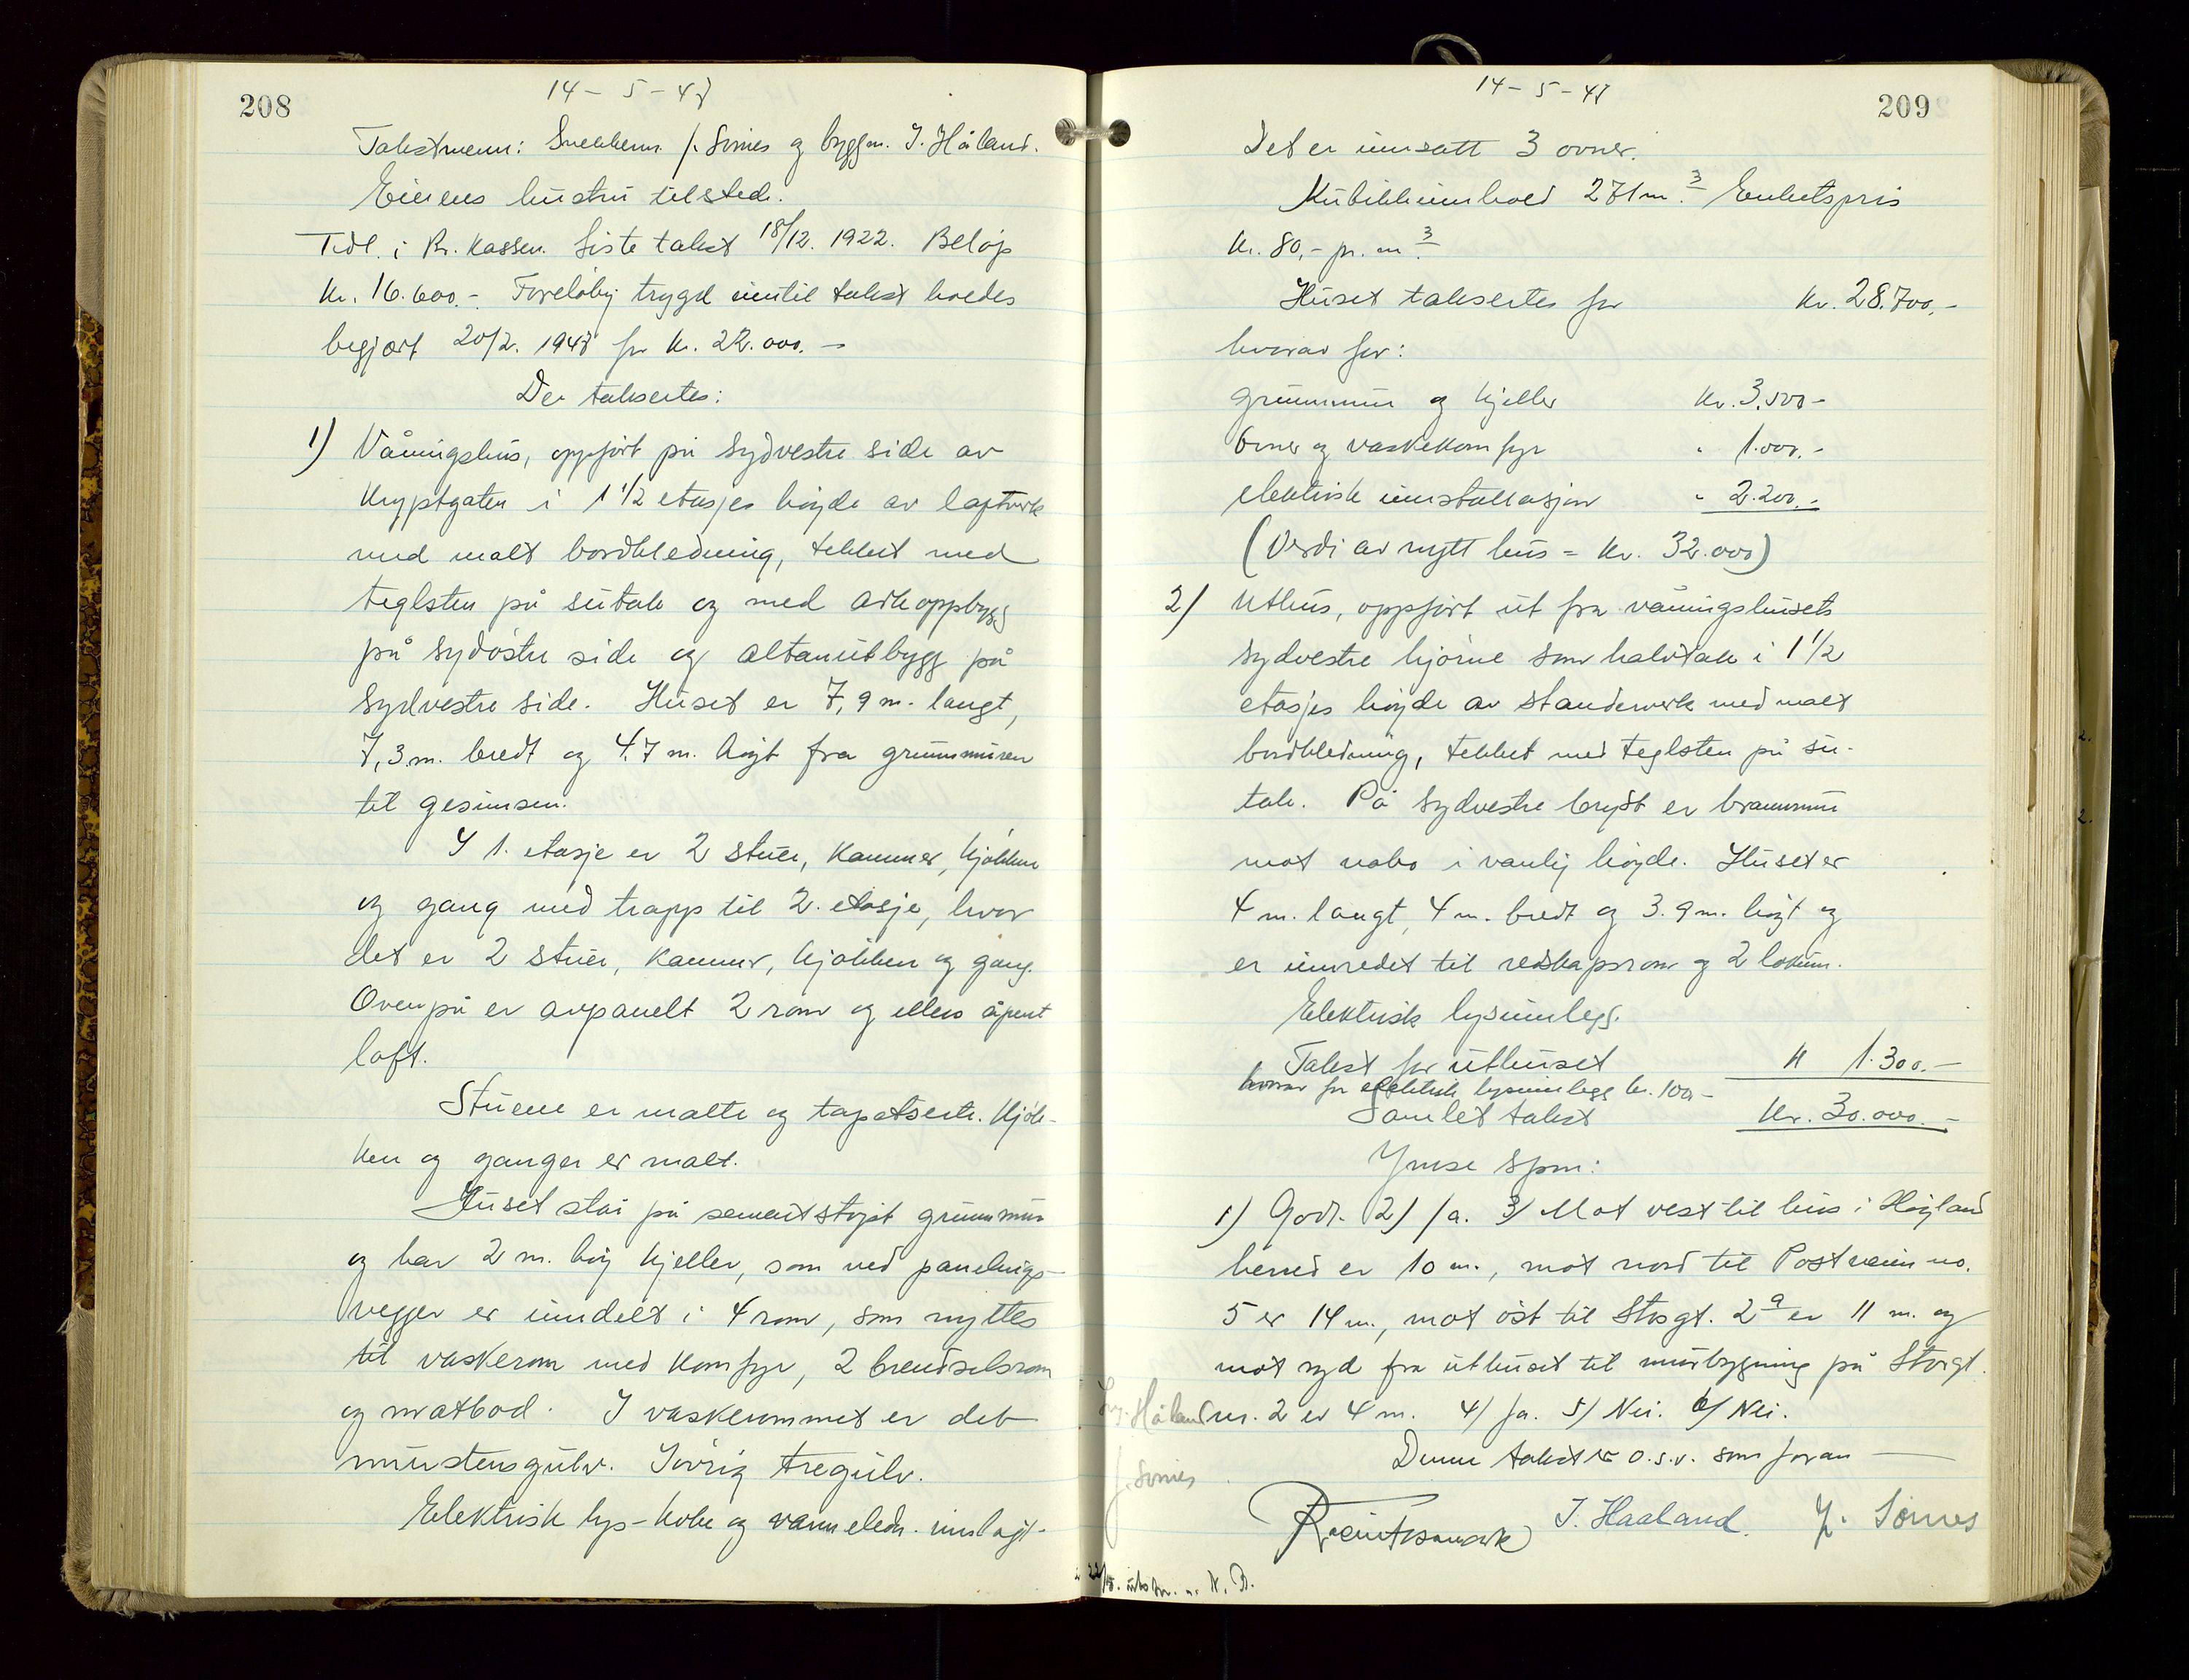 208
14 - 5 - 47
Takstmenn: Snekkerm. J. Sømes og byggm. I. Håland.
Eierens hustru tilstede.
Tidl. i Br. kassen. Siste takst 18/12. 1922. Beløp
Kr. 16.600.- Foreløbig trygd inntil takst holdes
begjært 20/2. 1947 for kr. 22.000.-
Der takseres:
1) Våningshus, oppført på sydvestre side av
Kryptgaten i 1 1/2 etasjes høyde av laftverk
med malt bordkledning, tekket med
teglsten på sutak og med arkoppbygg
på sydøstre side og altanutbygg på
sydvestre side. Huset er 7,9 m. langt,
7,3 m. bredt og 4.7 m. høgt fra grunnmuren
til gesimsen.
I 1. etasje er 2 stuer, kammer, kjøkken
og gang med trapp til 2. etasje, hvor
det er 2 stuer, kammer, kjøkken og gang.
Ovenpå er avpanelt 2 rom og ellers åpent
loft.
Stuene er malte og tapetserte. Kjøk-
ken og ganger er malt.
Huset står på sementstøpt grunnmur
og har 2 m. høg kjeller, som ved panelings-
vegger er inndelt i 4 rom, som nyttes
til vaskerom med komfyr, 2 brendselsrom
og matbod. I vaskerommet er det
murstensgulv. Iøvrig tregulv.
Elektrisk lys-koke og varmeledn. innlagt.
14 - 5 - 47
209
Det er innsatt 3 ovner.
Kubikkinnhold 271 m3. Enhetspris
kr. 80,- pr. m3.
Huset takseres for kr. 28.700,-
hvorav for:
grunnmur og kjeller kr. 3.500-
Ovner og vaskekomfyr " 1.000.-
elektrisk innstallasjon " 2.200.-
(Verdi av nytt hus = kr. 32.000)
2) Uthus, oppført ut fra våningshusets
sydvestre hjørne som halvtak i 1 1/2
etasjes høyde av standerverk med malt
bordkledning, tekket med teglsten på su-
tak. På sydvestre bryst er brannmur
mot nabo i vanlig høyde. Huset er
4 m. langt, 4 m. bredt og 3.9 m. høgt og
er innredet til redskapsrom og 2 lokum.
Elektrisk lysinnlegg.
Takst for uthuset " 1.300.-
hvorav for elektrisk lysinnlegg kr. 100.-
Samlet takst kr. 30.000.-
Ymse spm:
1) Godt. 2) Ja. 3) Mot vest til hus i Høyland
herred er 10 m., mot nord til Postveien no.
5 er 14 m., mot øst til Storgt. 2a er 11 m. og
mot syd fra uthuset til murbygning på Storgt.
nr. 2 er 4 m. 4) Ja. 5) Nei. 6) Nei.
Håland
J. Sømes
Denne takst er o.s.v. som foran
I. Haaland. J. Sømes
22/5. utskr. K. B.